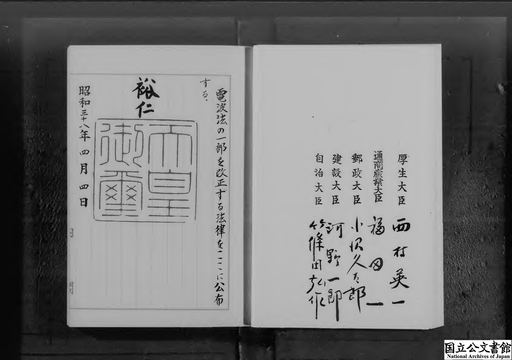 電波法の一部を改正する法律をここに公布
する。
裕仁
天皇
御璽
昭和三十八年四月四日
厚生大臣 西村英一
通商産業大臣 福田一
郵政大臣 小沢久太郎
建設大臣 河野一郎
自治大臣 篠田弘作
国立公文書館
National Archives of Japan